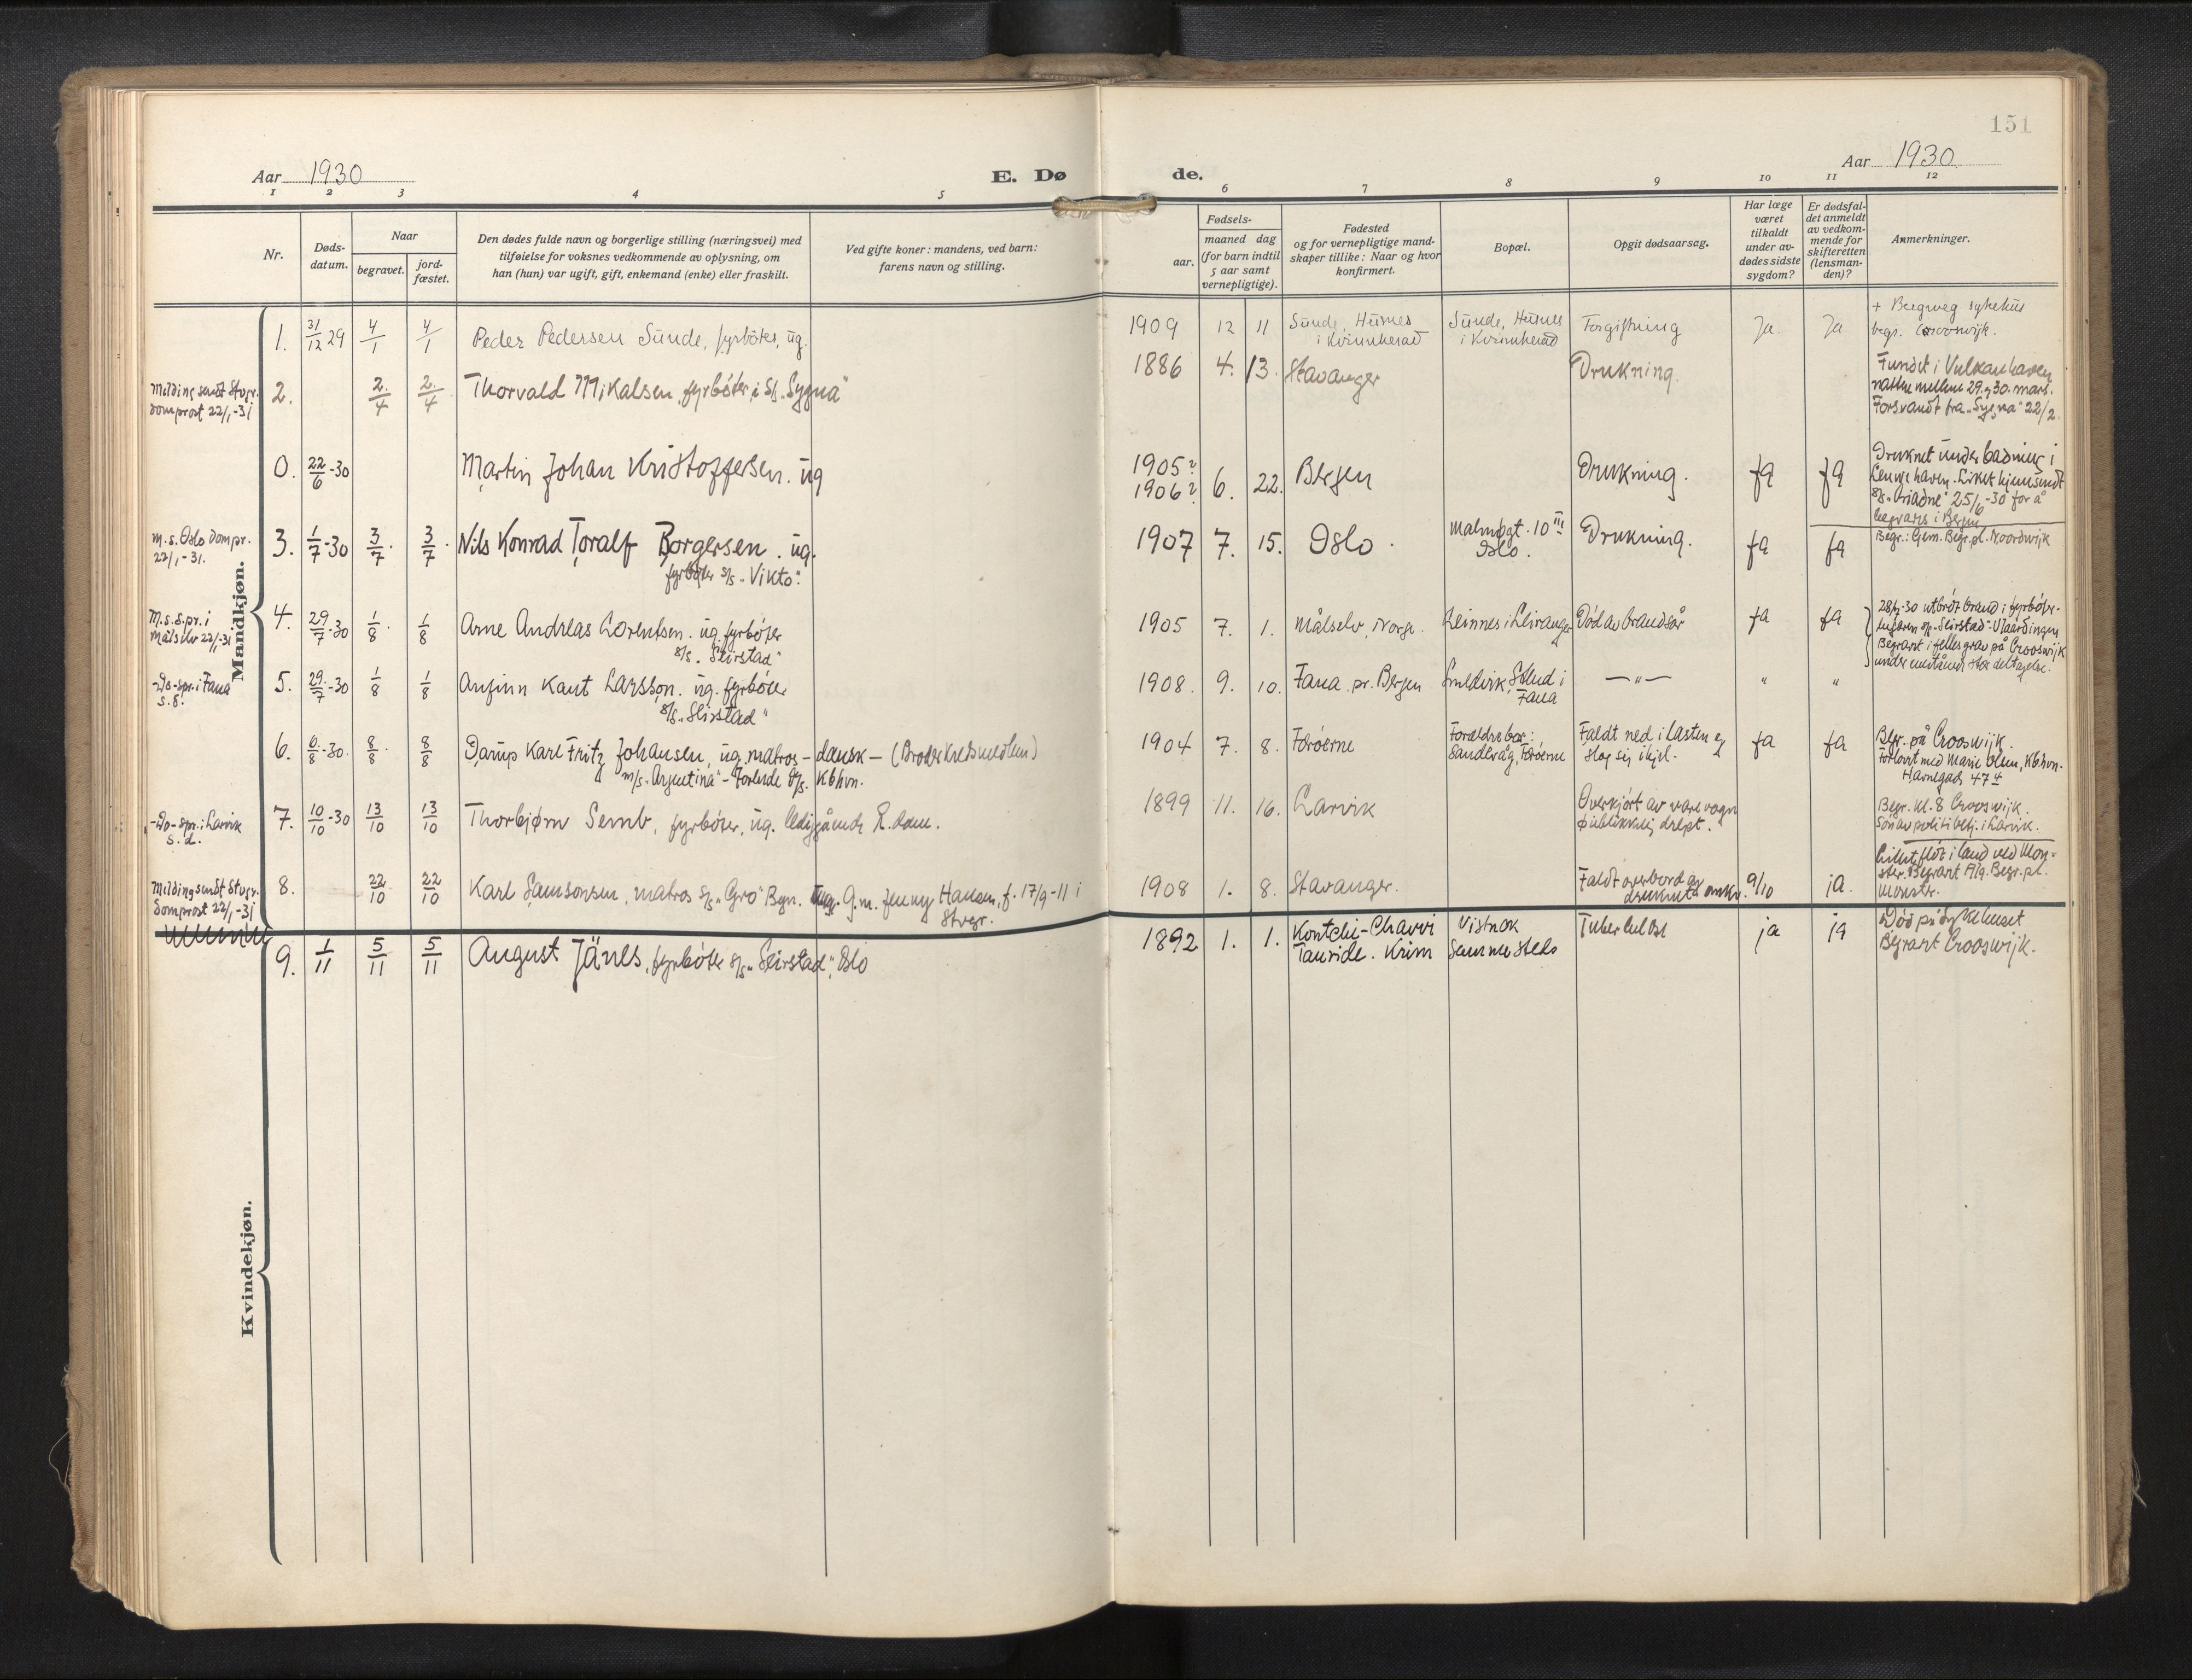 151
Aar 1930
E. Døde.
Aar 1930
1 2 3 4 5 6 7 8 9 10 11 12
Nr.
Døds-
datum.
Naar
begravet.
jord-
fæstet.
Den dødes fulde navn og borgerlige stilling (næringsvei) med
tilføielse for voksnes vedkommende av oplysning, om
han (hun) var ugift, gift, enkemand (enke) eller fraskilt.
Ved gifte koner: mandens, ved barn:
farens navn og stilling.
Fødsels-
aar.
maaned dag
(for barn indtil
5 aar samt
vernepligtige).
Fødested
og for vernepligtige mand-
skaper tillike: Naar og hvor
konfirmert.
Bopæl.
Opgit dødsaarsag.
Har læge
været
tilkaldt
under av-
dødes sidste
sygdom?
Er dødsfal-
det anmeldt
av vedkom-
mende for
skifteretten
(lensman-
den)?
Anmerkninger.
Mandkjøn.
1. 31/12 29 4/1 4/1 Peder Pedersen Sunde, fyrbøter, ug.
1909 12 11 Sunde, Husnes
i Kvinnherad
Sunde, Husnes
i Kvinnherad
Forgiftning Ja. Ja
+ Bergweg sykehus
begr. Crooswijk.
Melding sendt Stvgr.
domprost 22/1-31
2. 2/4 2/4 Thorvald Mikalsen, fyrbøter i S/S "Sygna"
1886 4. 13. Stavanger Drukning.
Fundet i Vulkanhaven
natten mellem 29. og 30. mars.
Forsvandt fra "Sygna" 22/2.
0. 22/6-30 Martin Johan Kristoffersen. ug
1905?
1906? 6. 22. Bergen Drukning. ja ja
Druknet under badning i
Leuvehaven. Liket hjemsendt
s/s "Ariadne" 25/6-30 for å
begraves i Bergen
m.s. Oslo dompr.
22/1-31.
3. 1/7-30 3/7. 3/7. Nils Konrad Toralf Borgersen. ug.
fyrbøter s/s "Vikto".
1907 7. 15. Oslo. Malmøgt. 10 III
Oslo.
Drukning. ja ja
Begr.: Gem. Begr.pl. Noordwijk
M.s.s.pr. i
Målselv 22/1-31
4. 29/7-30 1/8. 1/8 Arne Andreas Lorentsen. ug. fyrbøter
s/s. "Seirstad"
1905 7. 1. Målselv, Norge. Leinnes i Leiranger Død av brandsår ja ja
28/7-30 utbrøt brand i fyrbøter-
lugaren s/s "Seirstad" - Vlaardingen
Begravet i fellesgrav på Crooswijk
under enestående stor deltagelse.
-Do- spr. i Fana
s.d.
5. 29/7-30 1/8 1/8 Anfinn Kaut Larsson. ug. fyrbøter
s/s "Seirstad"
1908. 9. 10. Fana pr. Bergen Smedvik, Stend i
Fana
—"— " "
6. 6/8-30. 8/8. 8/8 Darup Karl Fritz Johansen, ug. matros - dansk - (Broderkredsmedlem)
m/s "Argentina" - Forende D/S. Kbhvn.
1904 7. 8. Færøerne Forældre bor:
Sandevåg, Færøerne
Faldt ned i lasten og
slog sig ihjel.
ja ja
Begr. på Crooswijk.
Forlovet med Marie Olsen, Kbhvn.
Havnegade 47 4
-Do- spr. i Larvik
s.d.
7. 10/10-30 13/10 13/10 Thorbjørn Semb, fyrbøter, ug. ledigående R.dam.
1899 11. 16. Larvik Overkjørt av varevogn
øiblikkelig drept.
Begr. kl. 8 Crooswijk.
Søn av politibetj. i Larvik.
Melding sendt Stvgr.
domprost 22/1-31
8. 22/10 22/10 Karl Samsonsen, matros s/s "Gro" Bgn. G.m. Jenny Hansen, f. 17/9-11 i
Stvgr.
1908 1. 8. Stavanger. Faldt overbord og
druknet omkr. 9/10 ja.
Liket fløt i land ved Mon-
ster. Begravet Alg. Begr.pl.
Monster.
9. 1/11 5/11 5/11 August Jänes, fyrbøter s/s "Seirstad", Oslo
1892 1. 1. Kontchi-Chavvi
Tauride. Krim
Vistnok
samme steds
Tuberkulose ja ja
Død på sykehuset
Begravet Crooswijk.
Kvindekjøn.